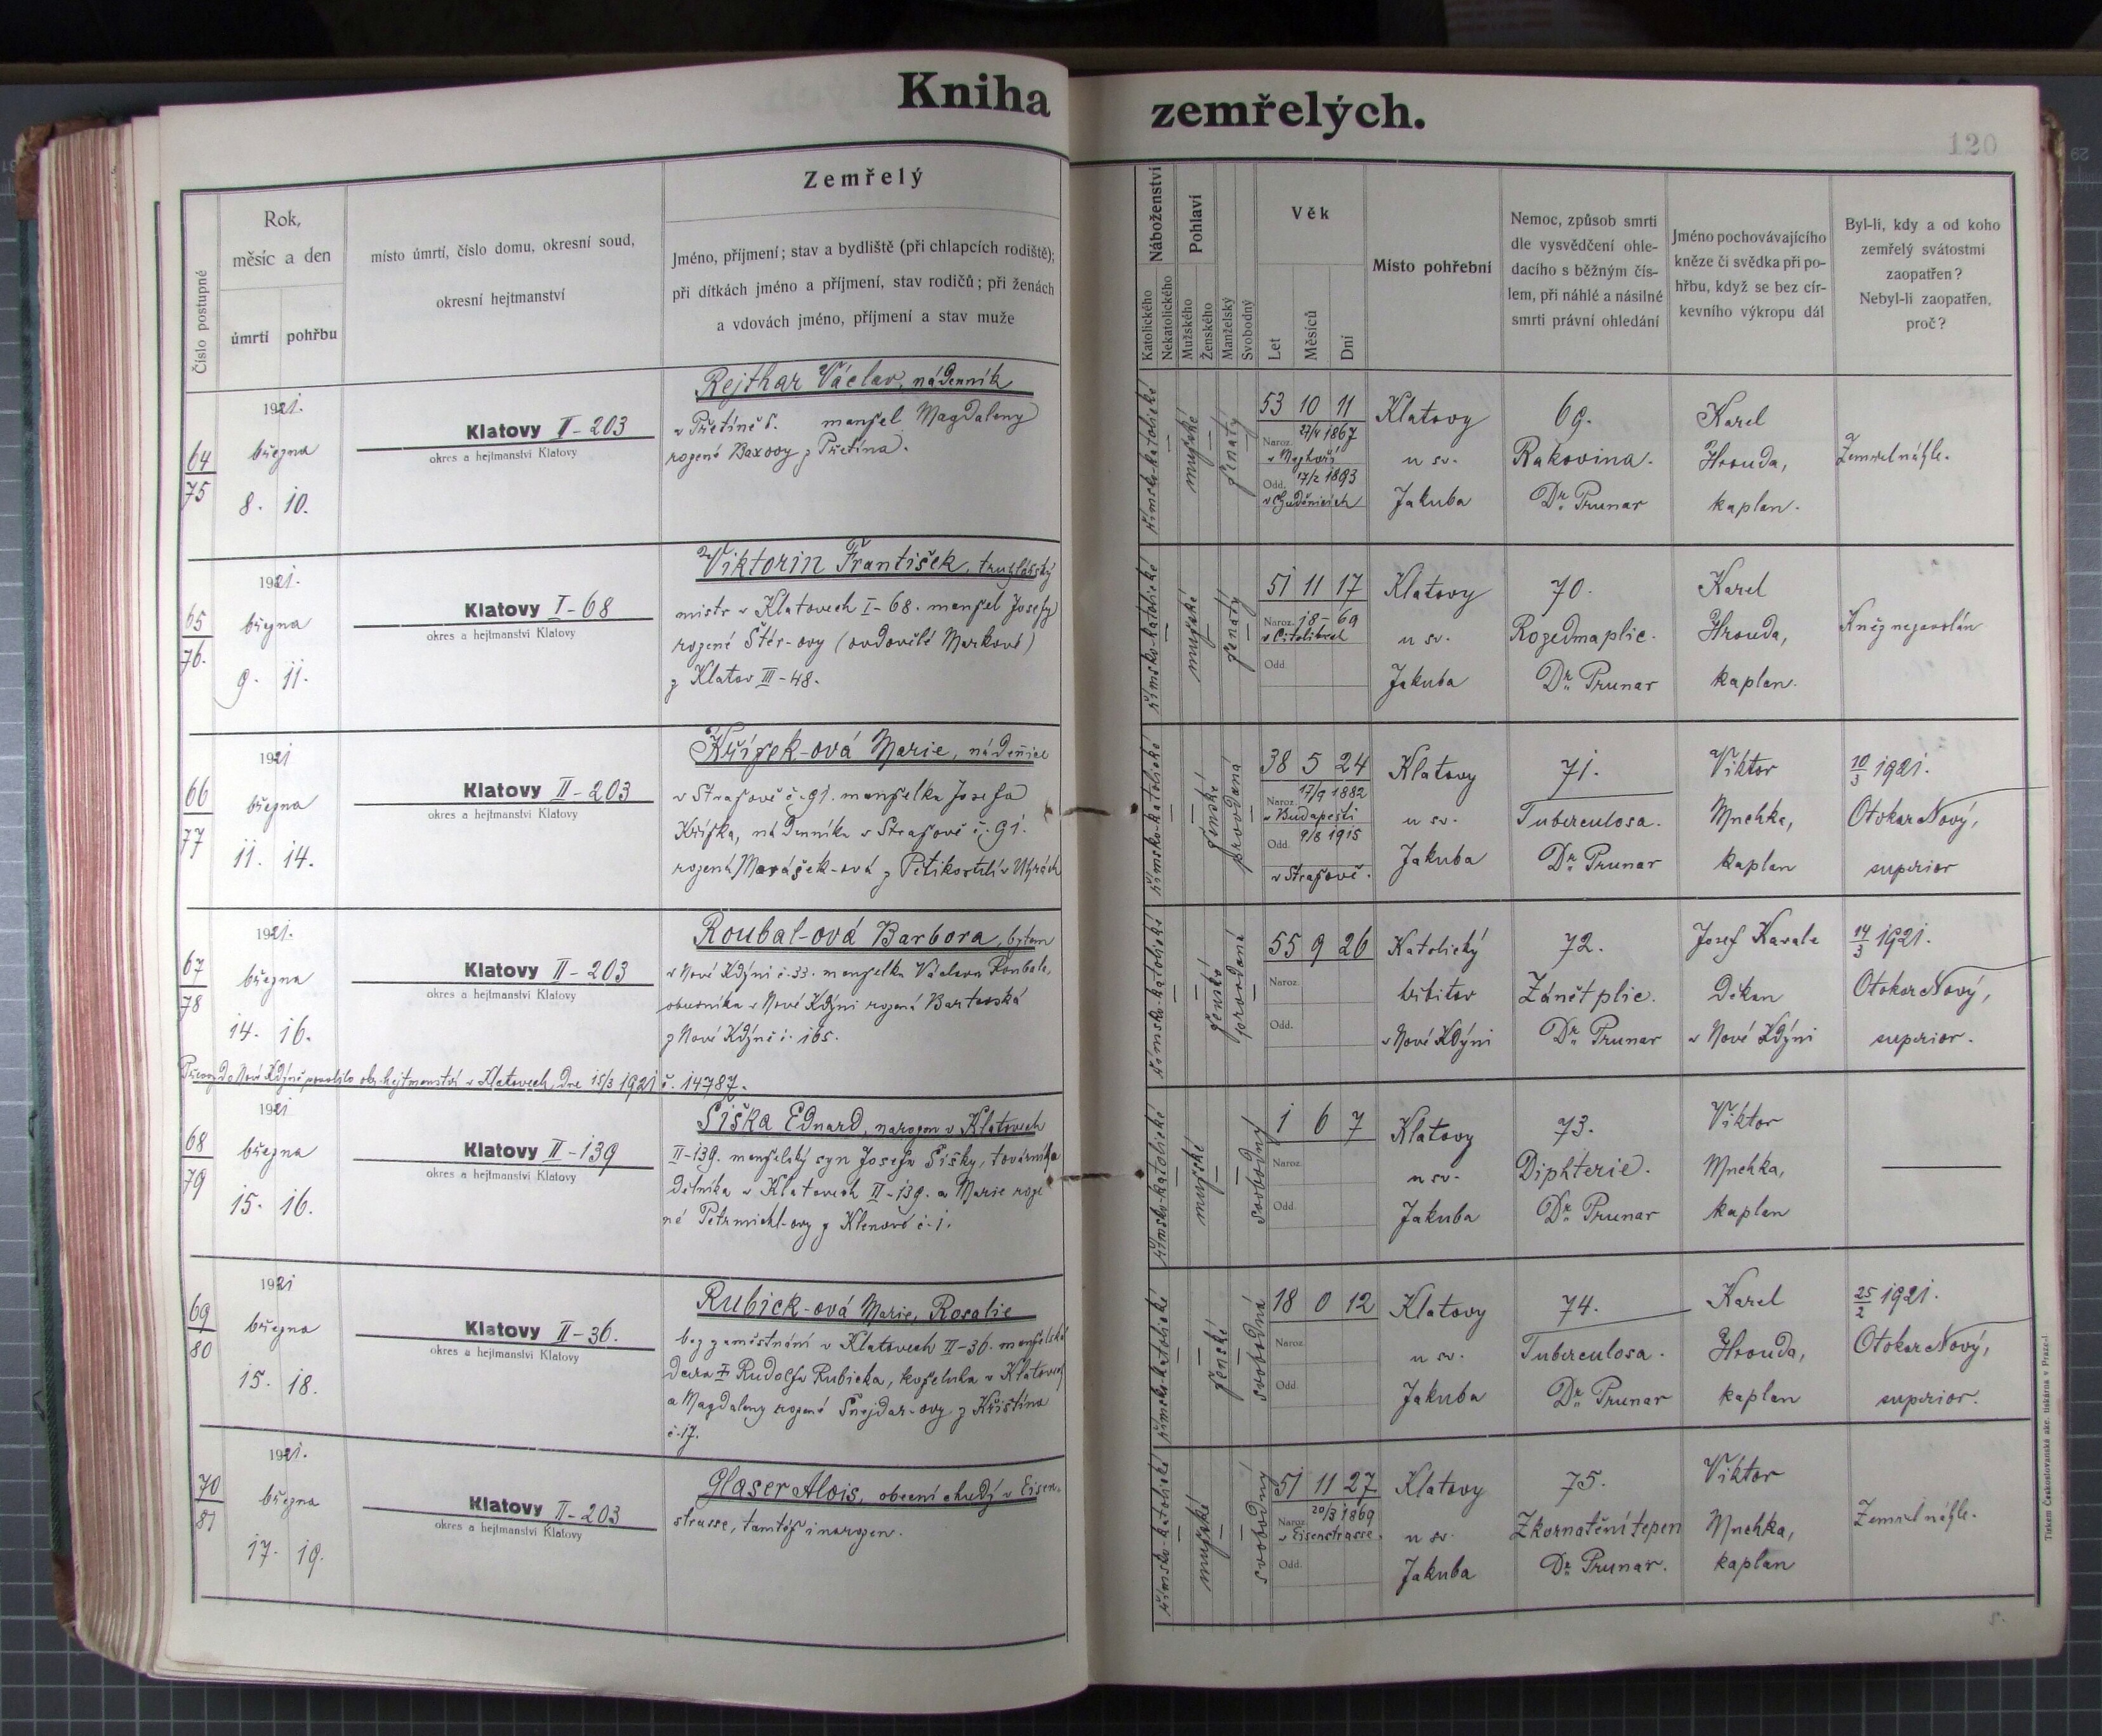 Kniha zemřelých.
120
Číslo postupné
Rok,
měsíc a den
úmrtí pohřbu
místo úmrtí, číslo domu, okresní soud,
okresní hejtmanství
Zemřelý
Jméno, příjmení; stav a bydliště (při chlapcích rodiště);
při dítkách jméno a příjmení, stav rodičů; při ženách
a vdovách jméno, příjmení a stav muže
Náboženství
Katolického
Nekatolického
Pohlaví
Mužského
Ženského
Manželský
Svobodný
Věk
Let
Měsíců
Dní
Místo pohřební
Nemoc, způsob smrti
dle vysvědčení ohle-
dacího s běžným čís-
lem, při náhlé a násilné
smrti právní ohledání
Jméno pochovávajícího
kněze či svědka při po-
hřbu, když se bez cír-
kevního výkropu dál
Byl-li, kdy a od koho
zemřelý svátostmi
zaopatřen?
Nebyl-li zaopatřen,
proč?
64
75
1921.
března
8. 10.
Klatovy II-203
okres a hejtmanství Klatovy
Rejthar Václav, nádenník
v Přetíně 8. manžel Magdaleny
rozené Baxovy z Přetína.
římsko-katolické
mužské
ženatý
53 10 11
Naroz. 27/4 1867
Odd. 17/2 1893
v Chudenicích
Klatovy
u sv.
Jakuba
69.
Rakovina.
Dr. Prunar
Karel
Hrouda,
kaplan.
Zemřel náhle.
65
76.
1921.
března
9. 11.
Klatovy I-68
okres a hejtmanství Klatovy
Viktorin František, truhlářský
mistr v Klatovech I-68. manžel Josefy
rozené Štér-ovy (ovdovělé Markové)
z Klatov III-48.
římsko-katolické
mužské
ženatý
51 11 17
Naroz. 18-69
v Citolibech
Odd.
Klatovy
u sv.
Jakuba
70.
Rozedma plic.
Dr. Prunar
Karel
Hrouda,
kaplan.
Kněz nezavolán
66
77
1921
března
11. 14.
Klatovy II-203
okres a hejtmanství Klatovy
Křížek-ová Marie, nádenice
v Stražově č. 91. manželka Josefa
Křížka, nádenníka v Stražově č. 91.
rozená z Pětikostelí v Uhrách
římsko-katolické
ženské
provdaná
38 5 24
Naroz. 17/9 1882
v Budapešti
Odd. 9/8 1915
v Stražově.
Klatovy
u sv.
Jakuba
71.
Tuberculosa.
Dr. Prunar
Viktor
Mnehka,
kaplan
10/3 1921.
Otokar Nový,
superior
67
78
1921.
března
14. 16.
Klatovy II-203
okres a hejtmanství Klatovy
Roubal-ová Barbora, bytem
v Nové Kdýni č. 33. manželka Václava Roubala,
obuvníka v Nové Kdýni rozená Bartovská
z Nové Kdýně č. 165.
Převoz do Nové Kdýně povolilo okr. hejtmanství v Klatovech dne 15/3 1921 č. 14787.
římsko-katolické
ženské
provdaná
55 9 26
Naroz.
Odd.
Katolický
hřbitov
v Nové Kdýni
72.
Zánět plic.
Dr. Prunar
Josef Kavale
Děkan
v Nové Kdýni
14/3 1921.
Otokar Nový,
superior.
68
79
1921
března
15. 16.
Klatovy II-139
okres a hejtmanství Klatovy
Šiška Eduard, narozen v Klatovech
II-139. manželský syn Josefa Šišky, továrního
dělníka v Klatovech II-139. a Marie roze
né Petrmichl-ovy z Klenové č. 1.
římsko-katolické
mužské
svobodný
1 6 7
Naroz.
Odd.
Klatovy
u sv.
Jakuba
73.
Diphterie.
Dr. Prunar
Viktor
Mnehka,
kaplan
69
80
1921
března
15. 18.
Klatovy II-36.
okres a hejtmanství Klatovy
Rubick-ová Marie, Rosalie
bez zaměstnání v Klatovech II-36. manželská
dcera Rudolfa Rubicka, koželuha v Klatovech
a Magdaleny rozené Šnejdar-ovy z Křištína
č. 17.
římsko-katolické
ženské
svobodná
18 0 12
Naroz.
Odd.
Klatovy
u sv.
Jakuba
74.
Tuberculosa.
Dr. Prunar
Karel
Hrouda,
kaplan
25/2 1921.
Otokar Nový,
superior.
70
81
1921.
března
17. 19.
Klatovy II-203
okres a hejtmanství Klatovy
Glaser Alois, obecní chudý v Eisen-
strasse, tamtéž i narozen.
římsko-katolické
mužské
svobodný
51 11 27
Naroz. 20/3 1869
v Eisenstrasse.
Odd.
Klatovy
u sv.
Jakuba
75.
Zkornatění tepen
Dr. Prunar.
Viktor
Mnehka,
kaplan
Zemřel náhle.
Tiskem Českoslovanská akc. tiskárna v Praze-I